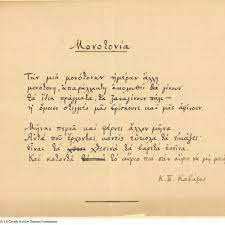 Μονοτονία
Τὴν μιὰ μονότονην ἡμέραν ἄλλη
μονότονη, ἀπαράλλακτη ἀκολουθεῖ. Θὰ γίνουν
τὰ ἴδια πράγματα, θὰ ξαναγίνουν πάλι —
ἡ ὅμοιες στιγμὲς μᾶς βρίσκουνε καὶ μᾶς ἀφίνουν.
Μῆνας περνᾶ καὶ φέρνει ἄλλον μῆνα.
Αὐτὰ ποὺ ἔρχονται κανεὶς εὔκολα τὰ εἰκάζει·
εἶναι τὰ χθεσινὰ τὰ βαρετὰ ἐκεῖνα.
Καὶ καταντᾶ τὸ αὔριο πιὰ σὰν αὔριο νὰ μὴ
Κ. Π. Καβάφης
4.0 Cavafy Archive Onassis Foundation